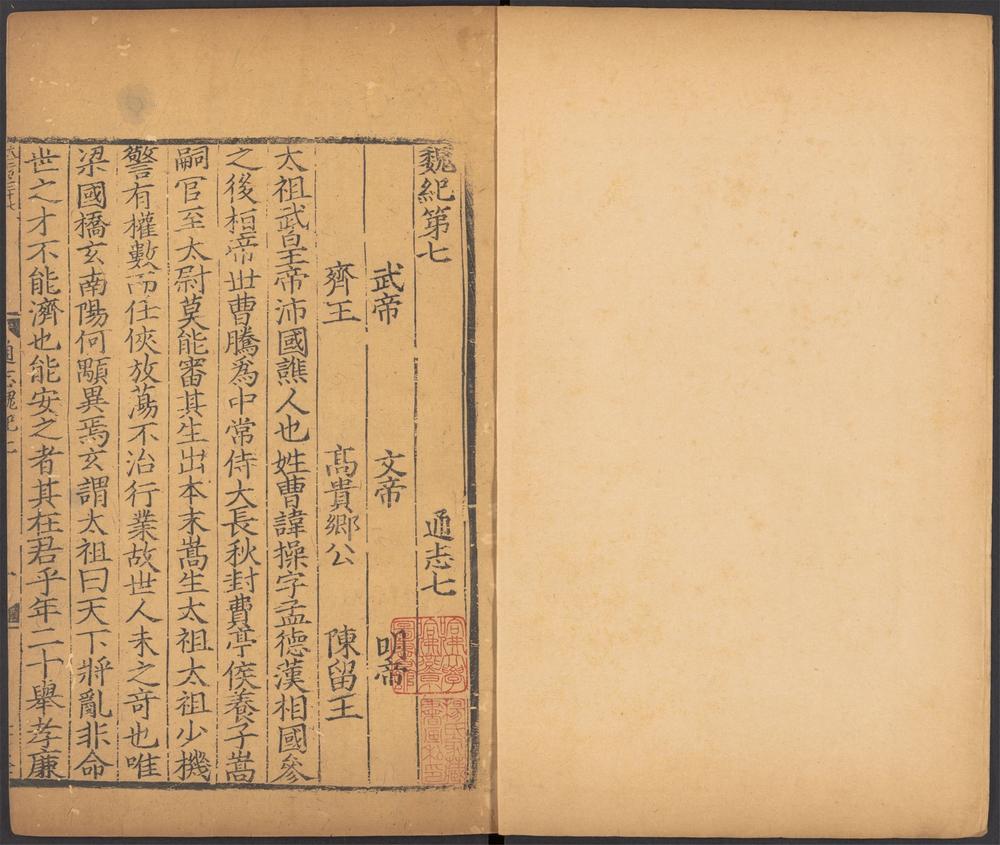 魏紀第七 通志七
武帝 文帝 明帝
齊王 高貴鄉公 陳留王
太祖武皇帝沛國譙人也姓曹諱操字孟德漢相國參
之後桓帝世曹騰爲中常侍大長秋封費亭侯養子嵩
嗣官至太尉莫能審其生出本末嵩生太祖太祖少機
警有權數而任俠放蕩不治行業故世人未之奇也唯
梁國橋玄南陽何顒異焉玄謂太祖曰天下將亂非命
世之才不能濟也能安之者其在君乎年二十舉孝廉
通志魏紀七